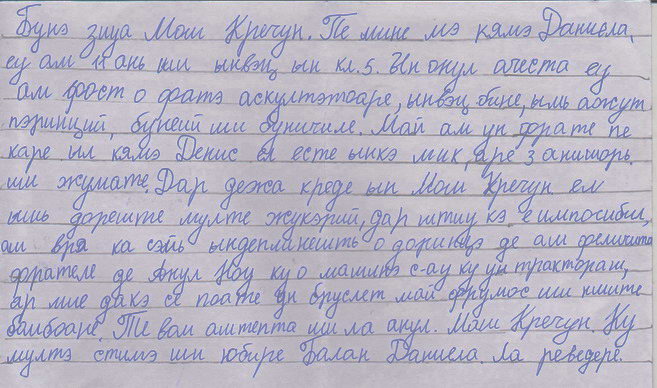 Бунэ зиуа Мош Кречун. Пе мине мэ кямэ Даниела,
еу ам 11 ань ши ынвэц ын кл. 5. Ын онул ачеста еу
ам фост о фатэ аскултэтоаре, ынвэц бине, ымь ажут
пэринций, бунеий ши буничиле. Май ам ун фрате пе
каре ыл кямэ Денис ел есте ынкэ мик, аре 3 анишорь
ши жумате. Дар дежа креде ын Мош Кречун ел
ышь дореште мулте жукэрий, дар штиу кэ е импосибил,
ам вря ка сэйь ындеплинешть о доринцэ де а-м феличита
фрателе де Анул Ноу ку о машинэ с-ау ку ун тракторaш,
ар мие дакэ се поате ун бруслет май фрумос ши ниште
бомбоане. Те вом аштепта ши ла анул. Мош Кречун. Ку
мултэ стимэ ши юбире Балан Даниела. Ла реведере.